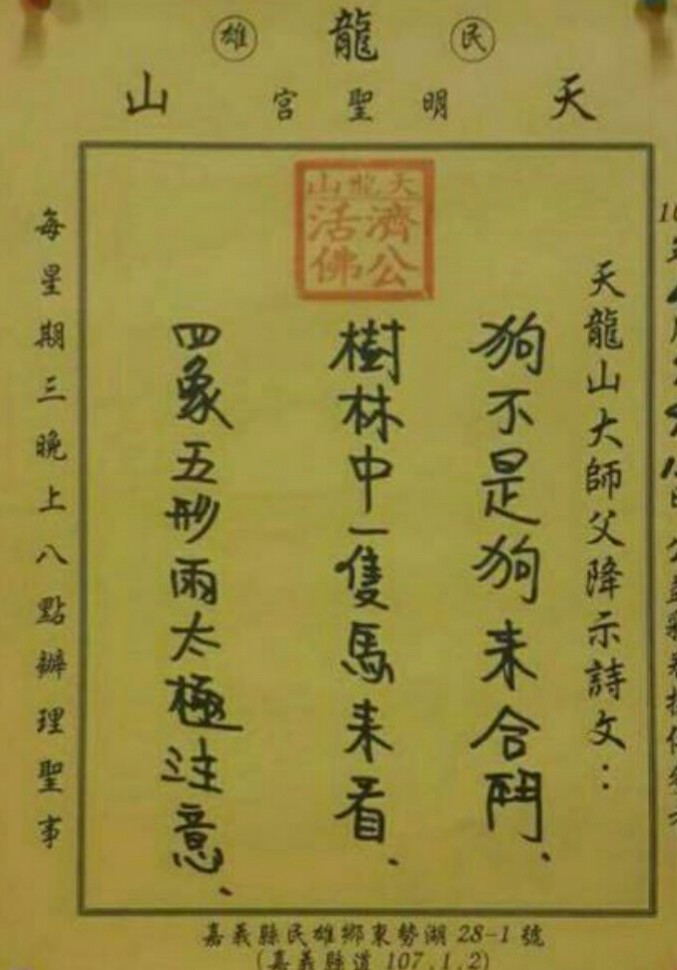 雄 龍 民
山 宮聖明 天
天龍山
濟公
活佛
天龍山大師父降示詩文：
狗不是狗来合鬥、
樹林中一隻馬来看、
四象五形兩太極注意、
每星期三晚上八點辦理聖事
嘉義縣民雄鄉東勢湖 28-1 號
(嘉義縣道 107.1.2)